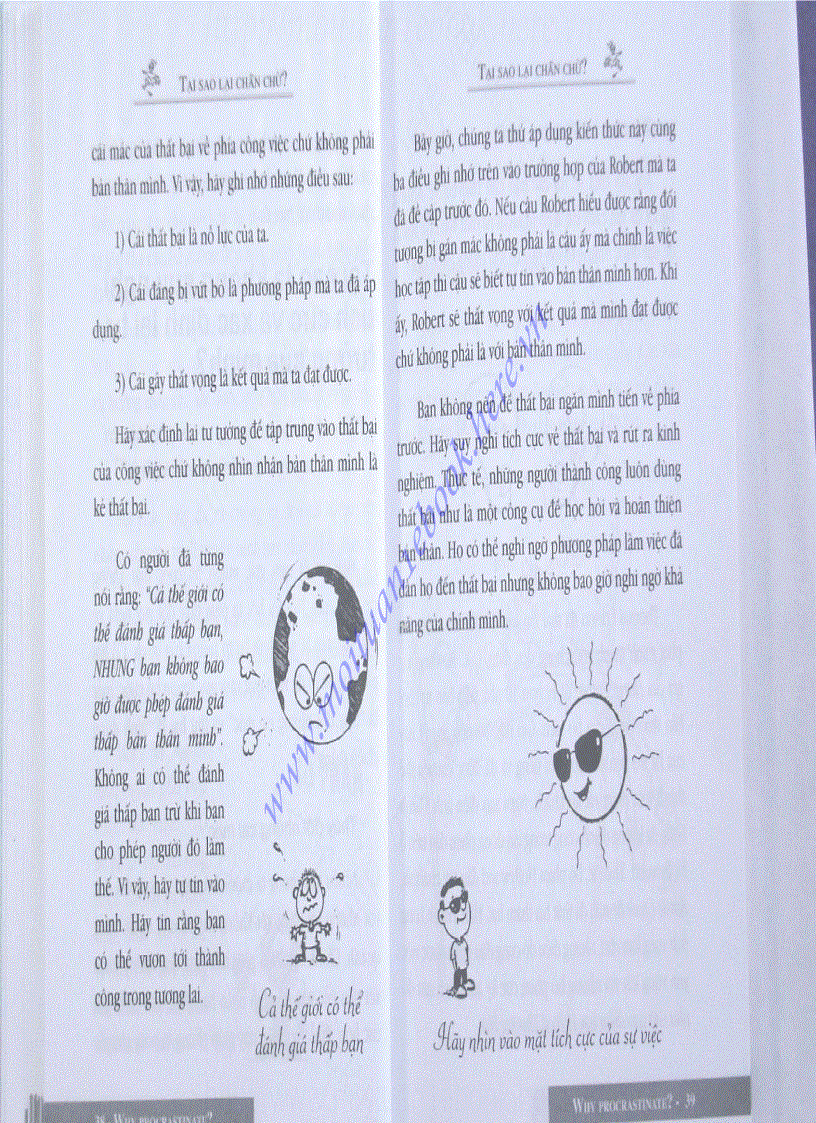 TẠI SAO LẠI CHẦN CHỪ?
cái mác của thất bại về phía công việc chứ không phải
bản thân mình. Vì vậy, hãy ghi nhớ những điều sau:
1) Cái thất bại là nỗ lực của ta.
2) Cái đáng bị vứt bỏ là phương pháp mà ta đã áp
dụng.
3) Cái gây thất vọng là kết quả mà ta đạt được.
Hãy xác định lại tư tưởng để tập trung vào thất bại
của công việc chứ không nhìn nhận bản thân mình là
kẻ thất bại.
Có người đã từng
nói rằng: "Cả thế giới có
thể đánh giá thấp bạn,
NHƯNG bạn không bao
giờ được phép đánh giá
thấp bản thân mình".
Không ai có thể đánh
giá thấp bạn trừ khi bạn
cho phép người đó làm
thế. Vì vậy, hãy tự tin vào
mình. Hãy tin rằng bạn
có thể vươn tới thành
công trong tương lai.
Cả thế giới có thể
đánh giá thấp bạn
38 WHY PROCRASTINATE?
TẠI SAO LẠI CHẦN CHỪ?
Bây giờ, chúng ta thử áp dụng kiến thức này cùng
ba điều ghi nhớ trên vào trường hợp của Robert mà ta
đã đề cập trước đó. Nếu cậu Robert hiểu được rằng đối
tượng bị gán mác không phải là cậu ấy mà chính là việc
học tập thì cậu sẽ biết tự tin vào bản thân mình hơn. Khi
ấy, Robert sẽ thất vọng với kết quả mà mình đạt được
chứ không phải là với bản thân mình.
Bạn không nên để thất bại ngăn mình tiến về phía
trước. Hãy suy nghĩ tích cực về thất bại và rút ra kinh
nghiệm. Thực tế, những người thành công luôn dùng
thất bại như là một công cụ để học hỏi và hoàn thiện
bản thân. Họ có thể nghi ngờ phương pháp làm việc đã
dẫn họ đến thất bại nhưng không bao giờ nghi ngờ khả
năng của chính mình.
Hãy nhìn vào mặt tích cực của sự việc
WHY PROCRASTINATE? - 39